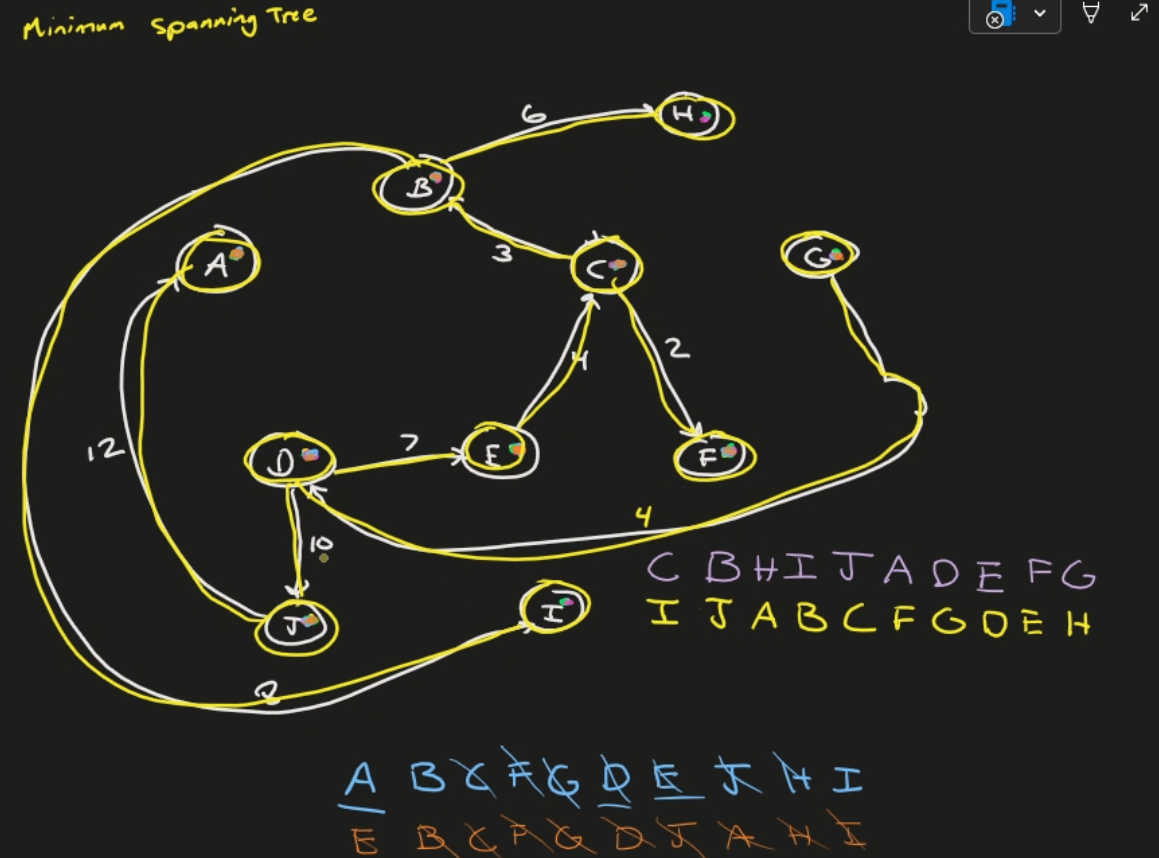 Minimum Spanning Tree
6
H
B
A
3
C
G
4
2
12
D
7
E
F
4
10
C B H I J A D E F G
J
I
I J A B C F G D E H
8
A B C F G D E J H I
E B C F G D J A H I